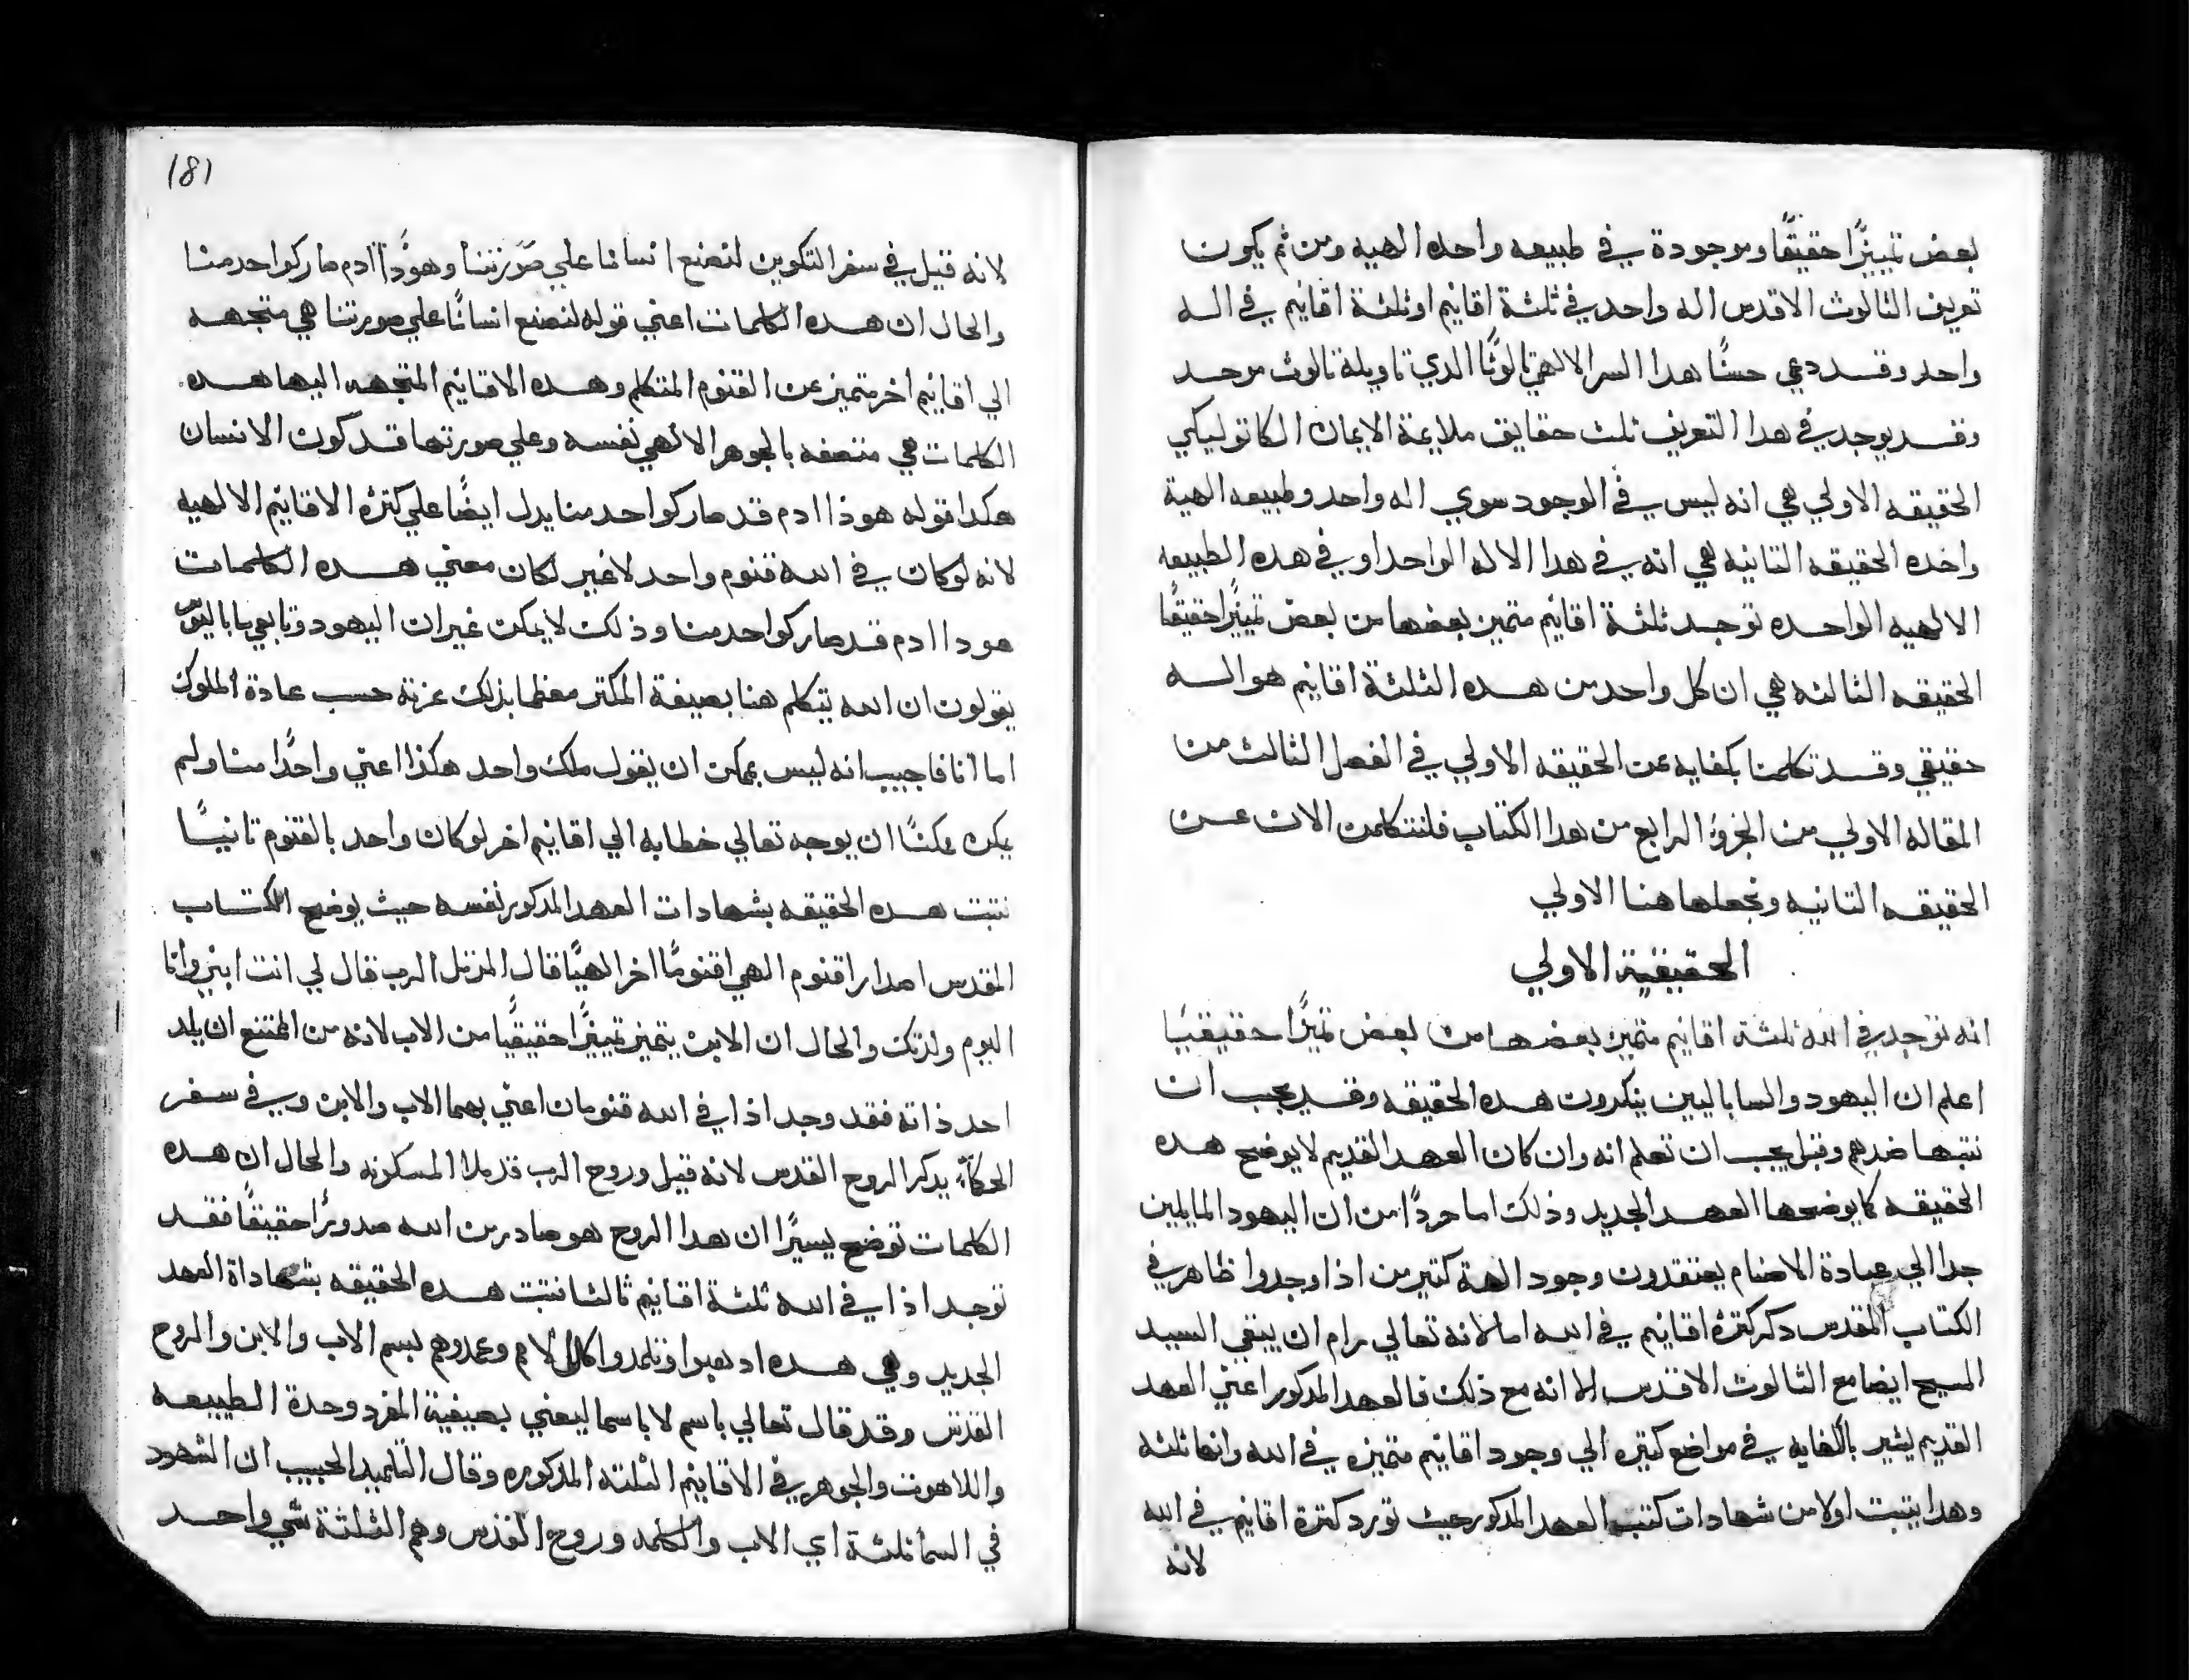 بعض تمييزًا حقيقًا وموجودة في طبيعه واحده الهيه ومن ثم يكون
تعريف الثالوث الاقدس اله واحد في ثلثة اقانيم او ثلثة اقانيم في اله
واحد وقد دعي حسنًا هدا السر الالهي ثالوثًا الدي تاويلة ثالوث موحد
وقد يوجد في هدا التعريف ثلث حقايق ملايمة الايمان الكاتوليكي
الحقيقه الاولي هي انه ليس في الوجود سوي اله واحد وطبيعه الهية
واحده الحقيقه التانيه هي انه في هدا الاله الواحد او في هده الطبيعه
الالهيه الواحده توجد ثلثة اقانيم متميز بعضها من بعض تمييزًا حقيقًا
الحقيقه الثالثه هي ان كل واحد من هده الثلثة اقانيم هو اله
حقيقي وقد تكلمنا بكفايه عن الحقيقه الاولي في الفصل الثالث من
المقاله الاولي من الجزؤ الرابع من هدا الكتاب فلنتكلمن الان عن
الحقيقه التانيه ونجعلها هنا الاولي
الحقيقية الاولي
انه توجد في الله ثلثة اقانيم متميز بعضها من بعض تميزًا حقيقيًا
اعلم ان اليهود والساباليين ينكرون هده الحقيقه وقد يجب ان
نتبتها ضدهم وقبل يجب ان تعلم انه وان كان العهد القديم لا يوضح هده
الحقيقه كما يوضحها العهد الجديد وذلك اما حردًا من ان اليهود المايلين
جدا الي عبادة الاصنام يعتقدون وجود الهة كتيرين اذا وجدوا ظاهر في
الكتاب المقدس دكر كترة اقانيم في الله اما لانه تعالي رام ان يبقي السيد
المسيح ايضا مع الثالوث الاقدس الا انه مع ذلك فالعهد المدكور اعني العهد
القديم يشير بالكفايه في مواضع كتيره الي وجود اقانيم متميزه في الله وانها ثلثه
وهدا يتبت اولا من شهادات كتب العهد المدكور حيث تورد كترة اقانيم في الله
لانه
181
لانه قيل في سفر التكوين لنصنع انسانا علي صورتنا وهوذا ادم صار كواحد منا
والحال ان هده الكلمات اعني قوله لنصنع انسانًا علي صورتنا هي متجهه
الي اقانيم اخر متميز عن القنوم المتكلم وهده الاقانيم المتجهه اليها هده
الكلمات هي متصفه بالجوهر الالهي نفسه وعلي صورتها قد كون الانسان
هكدا قوله هوذا ادم قد صار كواحد منا يدل ايضًا علي كترة الاقانيم الالهيه
لانه لو كان في الله قنوم واحد لا غير لكان معني هده الكلمات
هودا ادم قد صار كواحد منا وذلك لا يمكن غير ان اليهود وتابعي ساباليوس
يقولون ان الله يتكلم هنا بصيغة المكتر معظما بذلك عزته حسب عادة الملوك
اما انا فاجيب انه ليس بممكن ان يقول ملك واحد هكذا اعني واحدًا منا ولم
يكن ممكنًا ان يوجه تعالي خطابه الي اقانيم اخر لو كان واحد بالقنوم تانيًا
نتبت هده الحقيقه بشهادات العهد المدكور نفسه حيث يوضح الكتاب
المقدس اصدار اقنوم الهي اقنومًا اخر الهيًا قال المرتل الرب قال لي انت ابني وانا
اليوم ولدتك والحال ان الابن يتميز تمييزًا حقيقيًا من الاب لانه من الممتنع ان يلد
احد ذاته فقد وجد اذا في الله قنومان اعني بهما الاب والابن وفي سفر
الحكمة يدكر الروح القدس لانه قيل وروح الرب قد ملا المسكونه والحال ان هده
الكلمات توضح يسيرًا ان هدا الروح هو صادر من الله صدورًا حقيقًا فقد
توجد اذا في الله ثلثة اقانيم ثالثا نتبت هده الحقيقه بشهاداة العهد
الجديد وهي هده ادهبوا وتلمدوا كل الامم وعمدوهم بسم الاب والابن والروح
القدس وقد قال تعالي باسم لا باسما ليعني بصيغية المفرد وحدة الطبيعه
واللاهوت والجوهر في الاقانيم الثلثه المدكوره وقال التلميد الحبيب ان الشهود
في السما ثلثة اي الاب والكلمه وروح القدس وهم الثلثة شي واحد